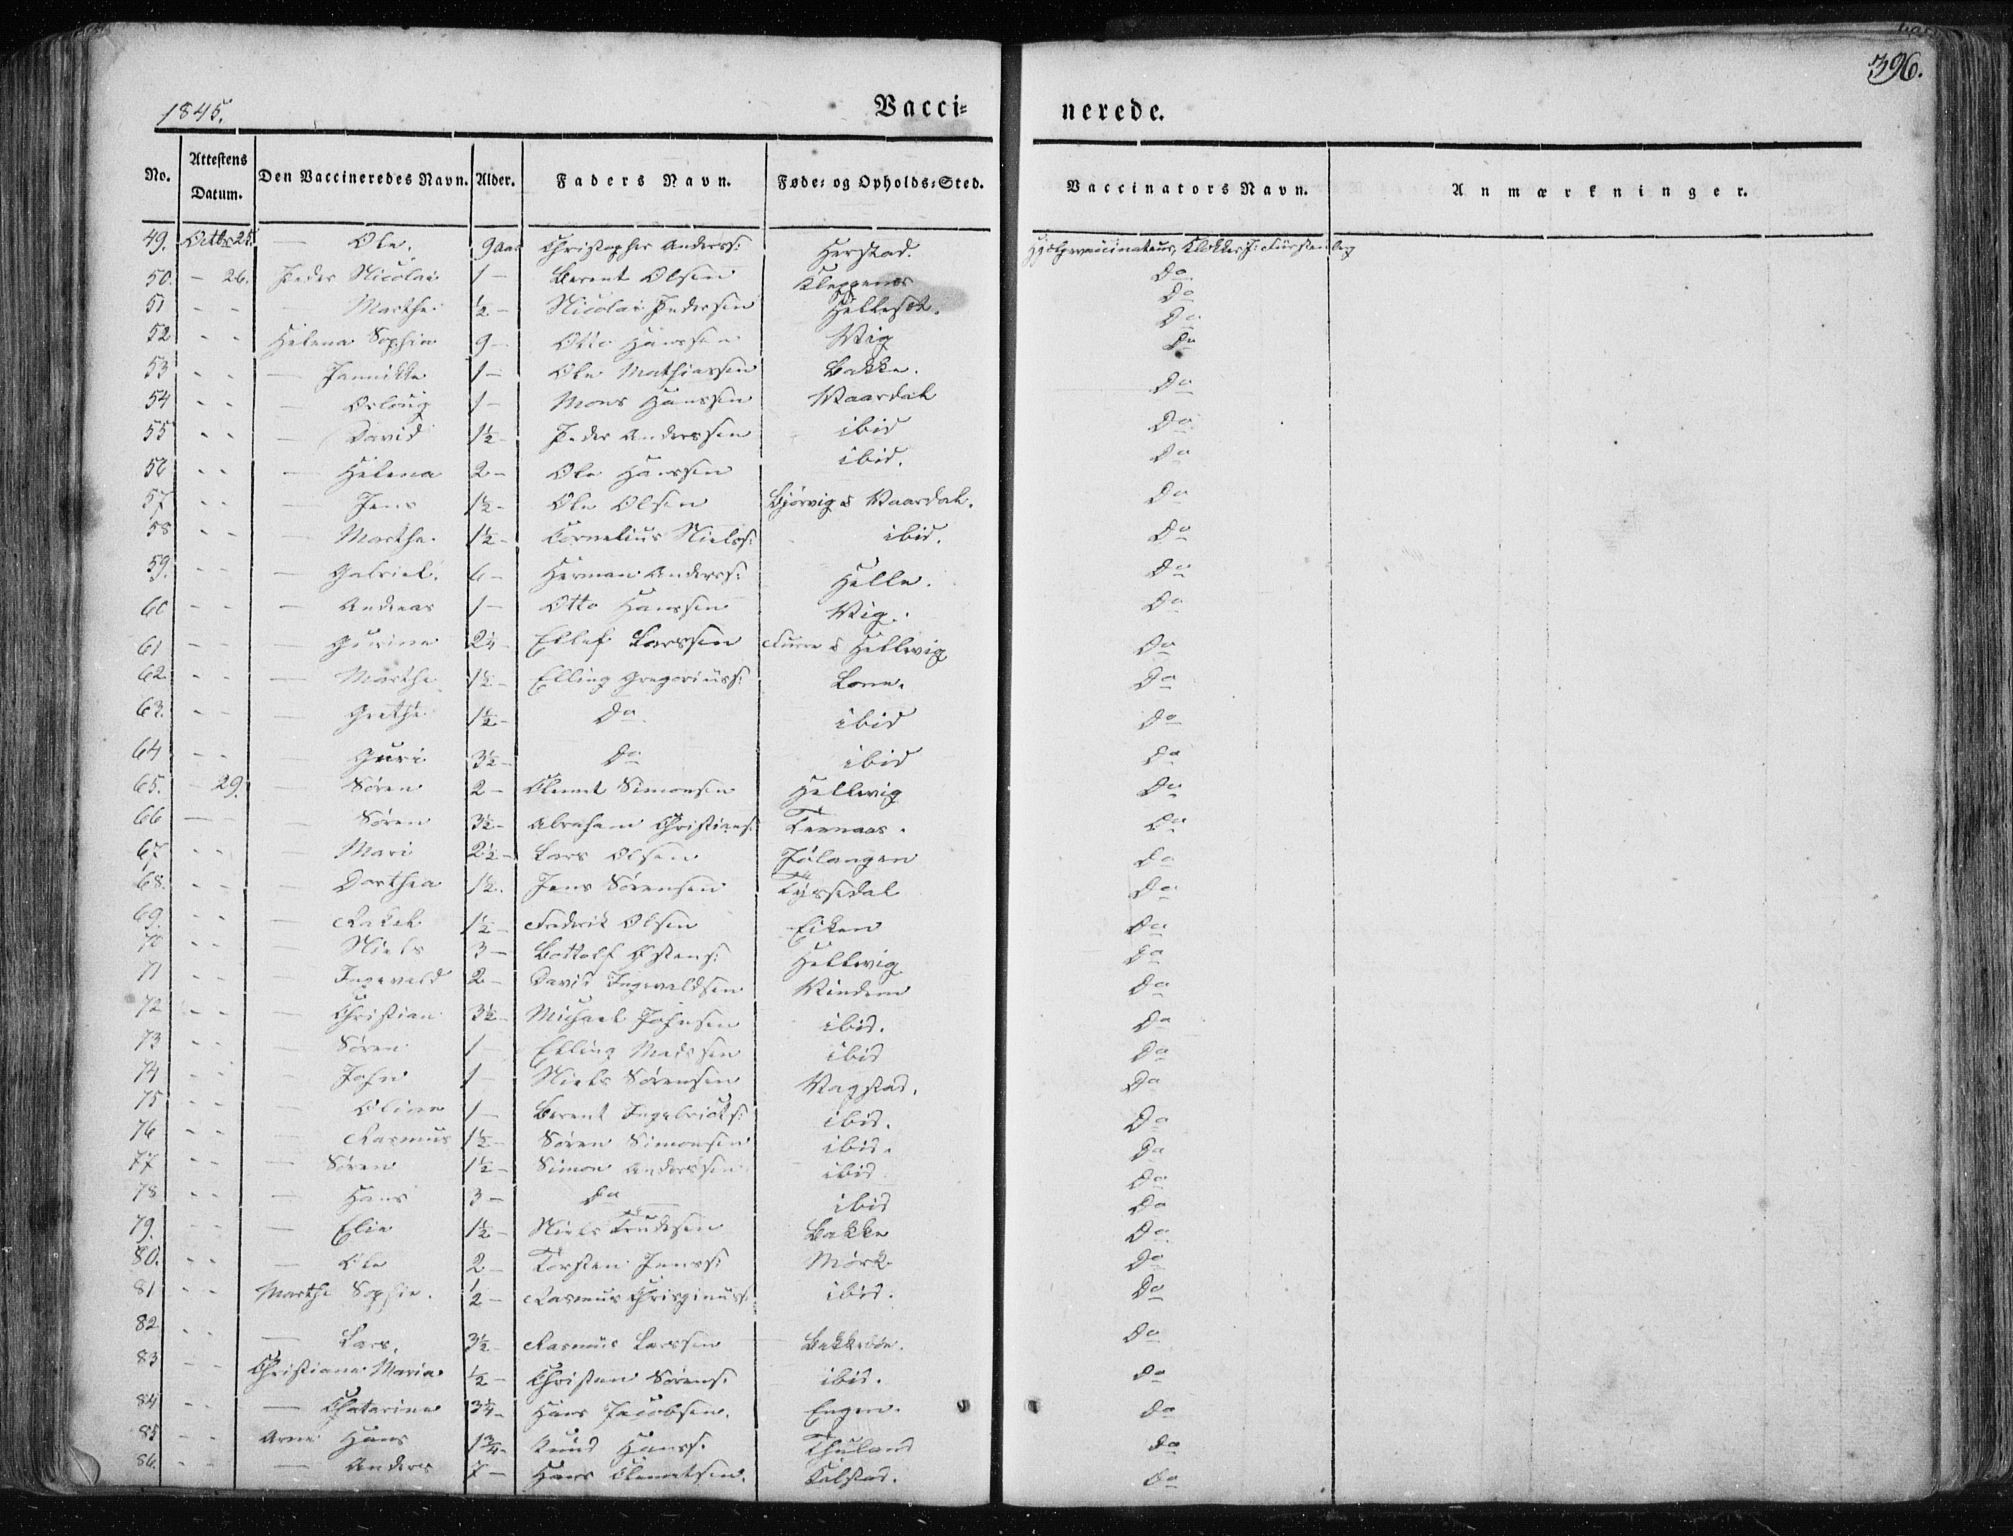 396.
1845.
Vacci= nerede.
No. Attestens Datum. Den Vaccineredes Navn. Alder. Faders Navn. Føde= og Opholds=Sted. Vaccinators Navn. Anmærkninger.
49. Octbr 25. — Ole. 9 Aar Christopher Anderss: Herstad. Hjelpevaccinateur, Klokker J. Fürstenberg
50. - 26. Peder Nicolai 1 - Berent Olsen Kleppenes Do
51 - - — Marthe ½ - Nicolai Pedersen Hellesøe. Do
52 - - Helena Sophia 9 - Otto Hanssen Wiig Do
53 - - — Jannikke 1 - Ole Mathiassen Bakke. Do
54 - - — Osloug 1 - Mons Hanssen Waardal Do
55 - - — David 1½ - Peder Anderssen ibid Do
56 - - — Helena 2 - Ole Hanssen ibid. Do
57 - - — Jens 1½ - Ole Olsen Bjørvig i Waardal. Do
58 - - — Marthe 1½ - Cornelius Nielss: ibid. Do
59. - - — Gabriel. 6 - Herman Anderss: Helle. Do
60 - - — Andreas 1 - Otto Hanssen Wig. Do
61 - - — Gurine 2¼ - Ellef Larssen Furre i Hellvig Do
62. - - — Marthe 1½ - Elling Gregoriuss: Lone. Do
63. - - — Grethe 1½ - Do ibid Do
64 - - — Guri 3½ - Do ibid Do
65. - 29. — Søren 2 - Clemet Simonsen Hellvig Do
66 - — Søren 3½ - Abraham Christians: Ternaas. Do
67 - - — Mari 2½ - Lars Olsen Jølangen Do
68. - - — Dorthea 1½. Jens Sørensen Tyssedal Do
69. - - — Rakel 1½ - Frederik Olsen Eiken Do
70 - - — Niels 3 - Bottolf Østens: Hellvig Do
71 - - — Ingevald 2 - David Ingevaldsen Windem Do
72 - - — Christian 3½ - Michael Johnsen ibid. Do
73 - - — Søren 1 - Elling Madssen ibid Do
74 - - — John 1 - Niels Sørensen Wagstad. Do
75 - - — Oline 1 - Berent Ingebrigts: ibid. Do
76 - - — Rasmus 1½ - Søren Simonsen ibid. Do
77 - - — Søren 1½ - Simon Anderssen ibid. Do
78 - - — Hans 3 - Do ibid Do
79. - - — Elie 1½ - Niels Trudsen Bakke Do
80. - - — Ole 2 - Torsten Jenss: Mørk Do
81 - - Marthe Sophie. ½ - Rasmus ibid. Do
82 - - — Lars. 3½ - Rasmus Larssen Bakkebøe. Do
83 - - Christiane Maria ½ - Christen Sørens: ibid. Do
84 - - — Chatarine 3¼ - Hans Jacobsen. Engen. Do
85 - - Arne Hans 1¾ - Knud Hanss. Thuland Do
86. - - — Anders 7 - Hans Clemetsen. Kalstad. Do